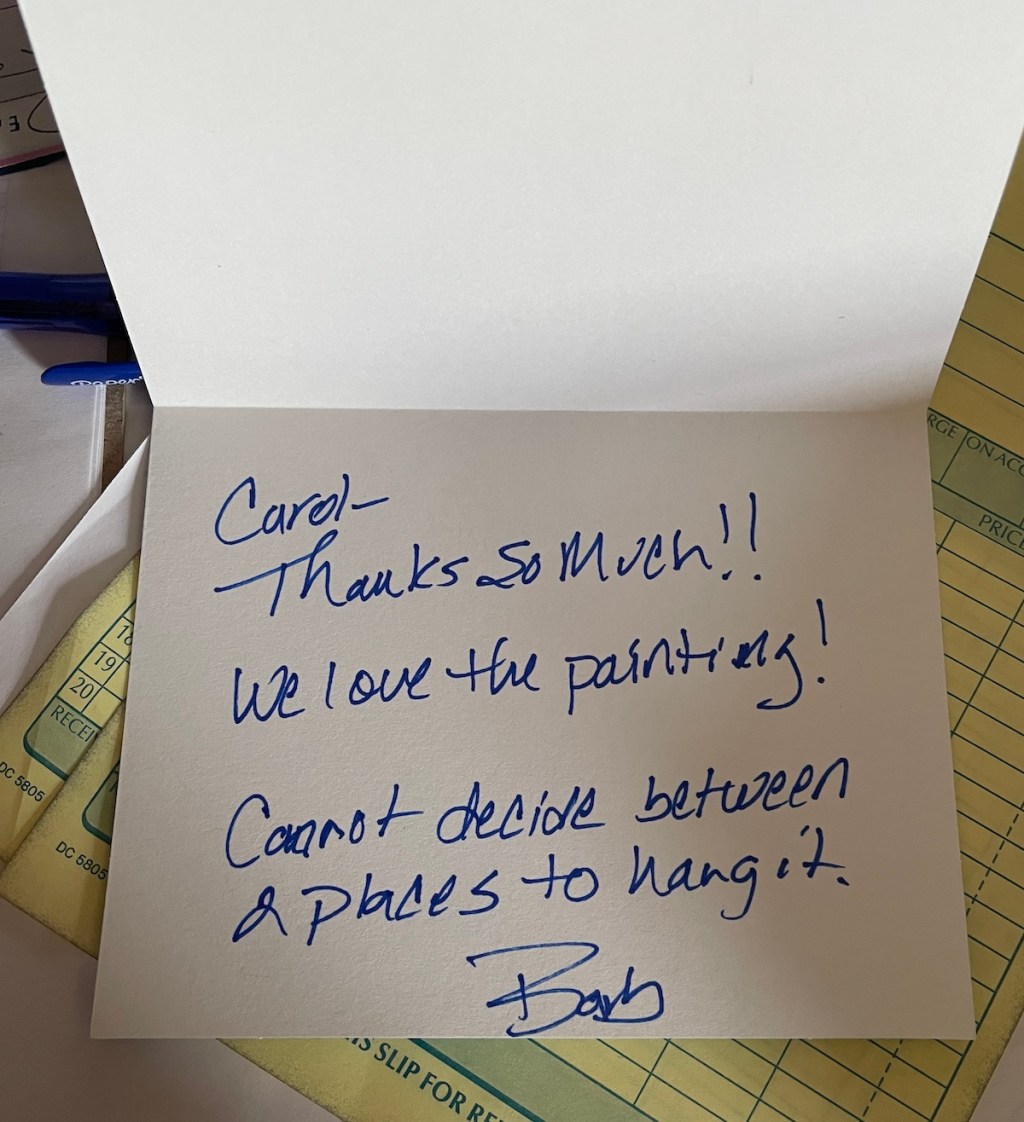 Carol-
Thanks So Much!!
We love the painting!
Cannot decide between
2 places to hang it.
Barb
Paper
RGE
ON ACC
PRICE
18
19
20
RECEI
DC 5805
DC 5805
IS SLIP FOR RE